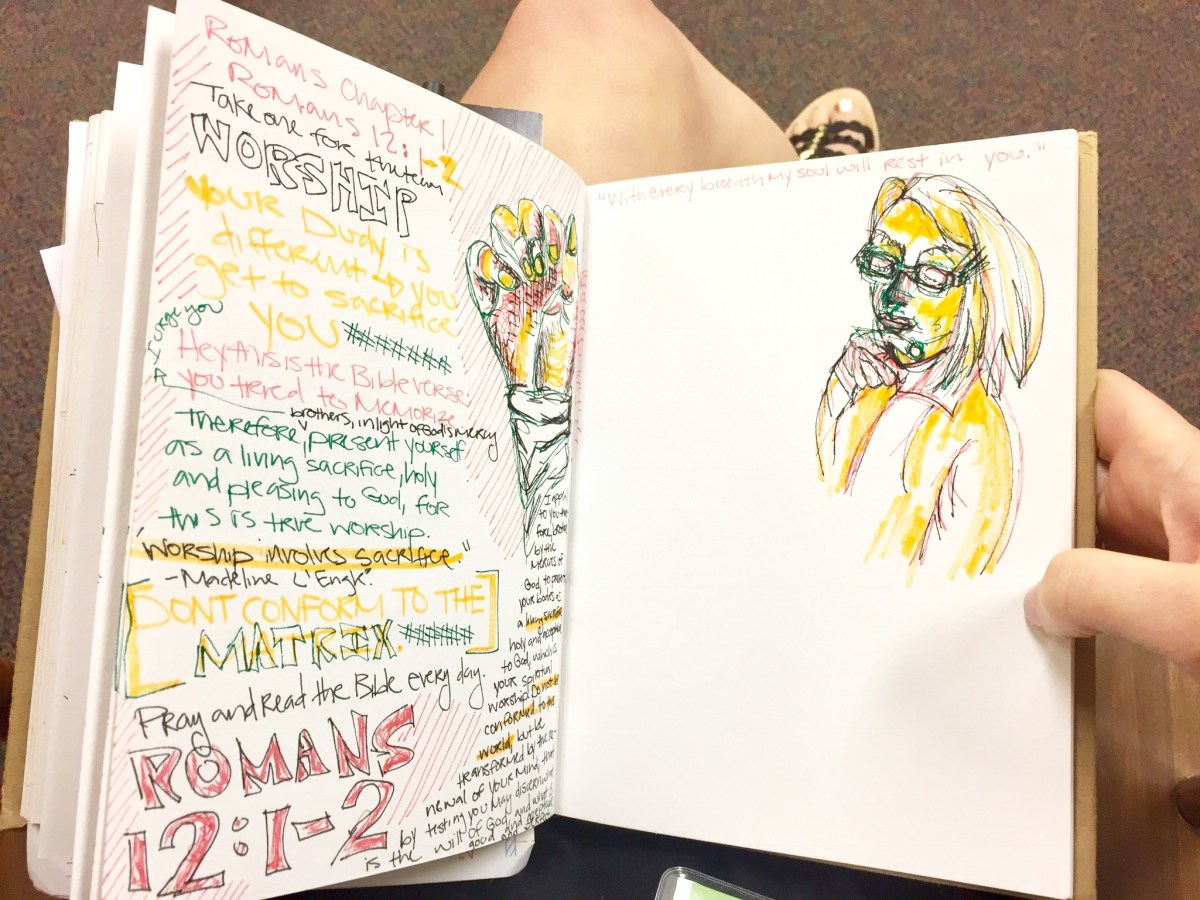 Romans Chapter 1
Romans 12:1-2
Take one for the team
WORSHIP
Your Dudy is
different → you
get to sacrifice
YOU #######
I urge you
Hey this is the Bible verse
you tiered to memorize.
brothers, in light of God's mercy
therefore, present yourself
as a living sacrifice, holy
and pleasing to God, for
this is true worship.
"Worship involves sacrifice."
-Madeline L'Engle.
[DONT CONFORM TO THE
MATRIX. ######]
Pray and Read the Bible every day.
ROMANS
12:1-2
"I appeal
to you there
fore, brothers
by the
mercies of
God, to present
your bodies as
a living sacrifice
holy and accepted
to God, which is
your spiritual
worship. Do not be
conformed to the
world, but be
transformed by the re-
newal of your mind, that
by testing you may discern what
is the will of God and what is
good and
"With every breath my soul will rest in you."